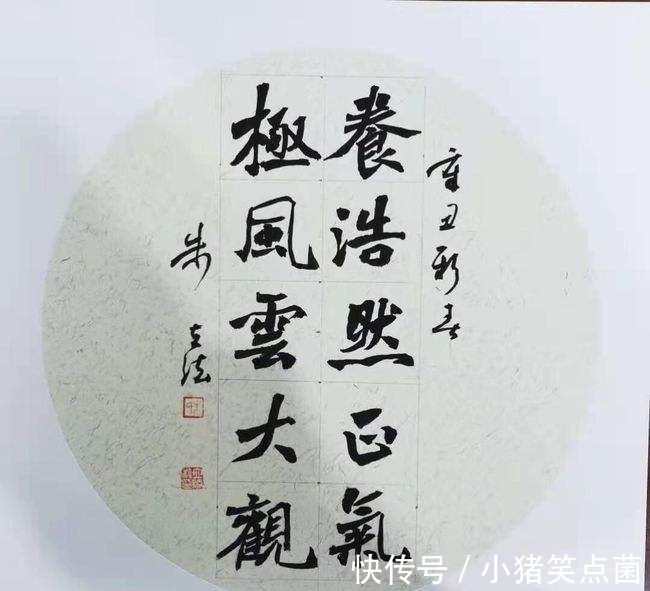 辛丑新春
養浩然正氣
極風雲大觀
朱立法
快传号/小猪笑点菌